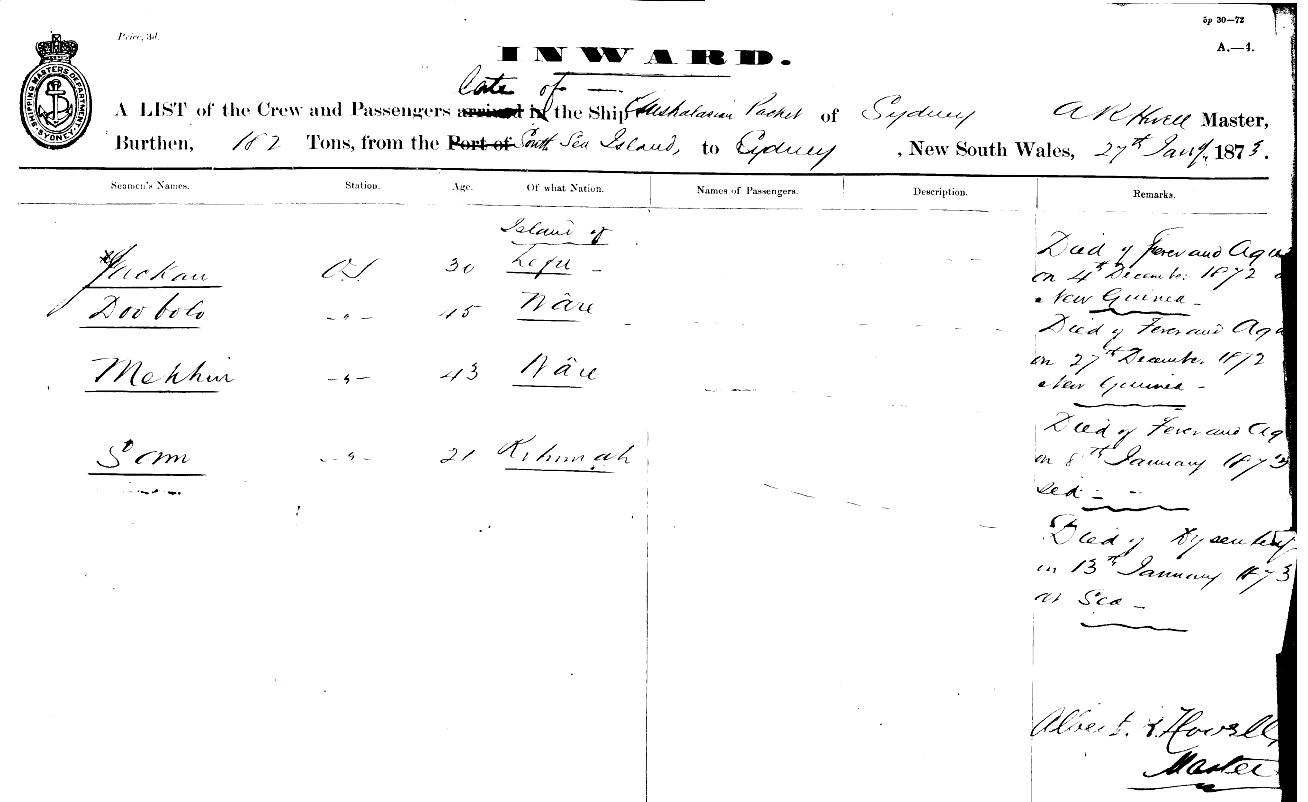 5p 30—72
Price, 3d.
A.—4.
INWARD.
Late of —
A LIST of the Crew and Passengers arrived in the Ship Australasian Packet of Sydney A R Howell Master,
Burthen, 182 Tons, from the Port of South Sea Island, to Sydney , New South Wales, 27th Jany. 1873.
SHIPPING MASTERS DEPARTMENT
SYDNEY
Seamen's Names. Station. Age. Of what Nation. Names of Passengers. Description. Remarks.
Island of
Jackau O.S 30 Lifu – Died of Fever and Ague
on 4th December 1872
New Guinea –
Doobolo –"– 45 Nâre
Died of Fever and Agu
on 27th December 1872
New Guinea –
Mekhin –"– 43 Nâre
Died of Fever and Ag
on 8th January 1873
Sea –
Sam –"– 21
Died of Dysentery
on 13th January 1873
at Sea –
Albert. R Howell,
Master